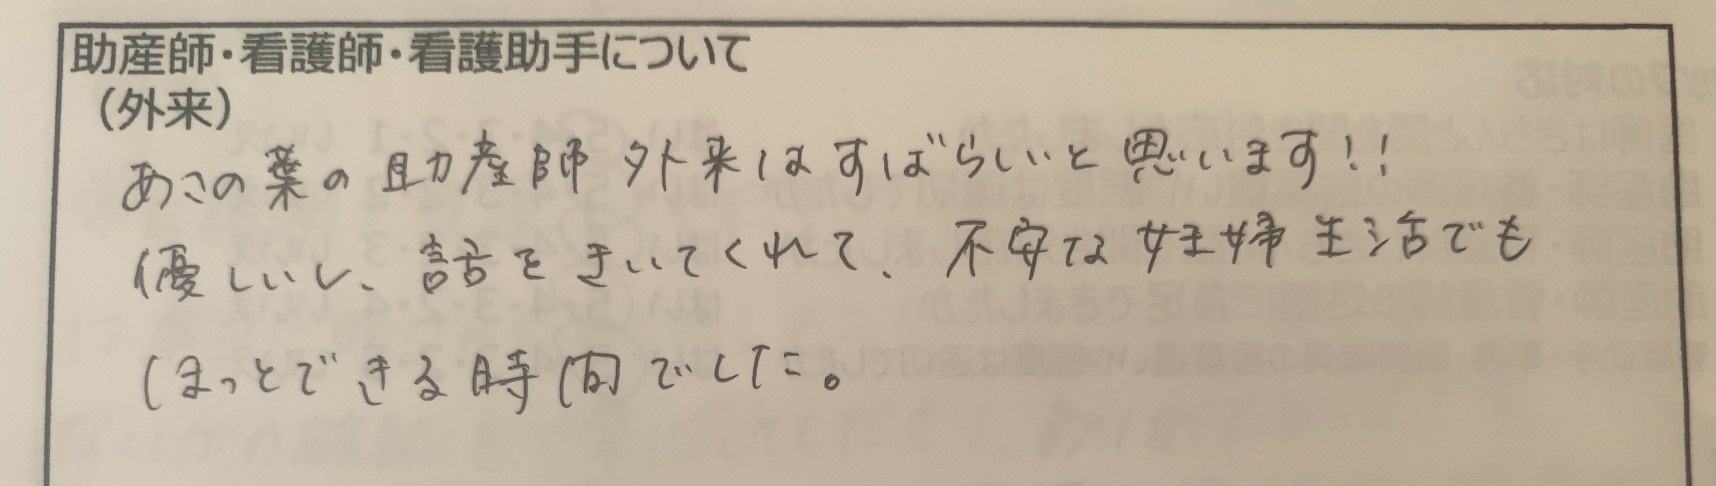 助産師・看護師・看護助手について
（外来）
あさの葉の助産師外来はすばらしいと思います!!
優しいし、話をきいてくれて、不安な妊婦生活でも
ほっとできる時間でした。